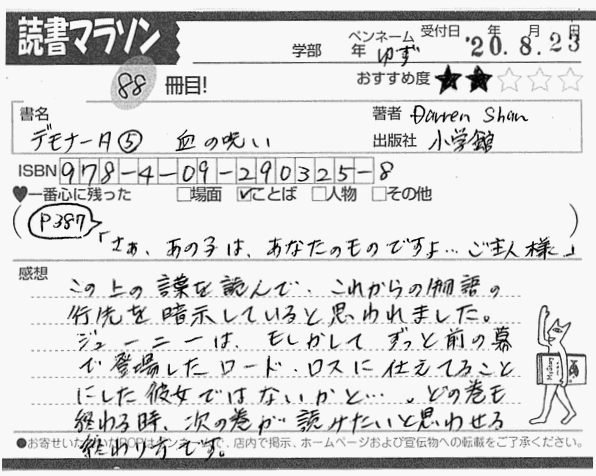 読書マラソン
学部 年 ペンネーム ゆず 受付日 '20.年8.月23日
88 冊目!
おすすめ度 ★★☆☆☆
書名 デモナータ⑤ 血の呪い
著者 Darren Shan
出版社 小学館
ISBN 978-4-09-290325-8
♥一番心に残った □場面 ☑ことば □人物 □その他
(P387
「さぁ、あの子は、あなたのものですよ…ご主人様」)
感想
この上の言葉を読んで、これからの物語の
行先を暗示していると思われました。
ジューニーは、もしかして ずっと前の幕
で登場したロード・ロスに仕えてること
にした彼女ではないかと…。どの巻も
終わる時、次の巻が読みたいと思わせる
終わり方です。
●お寄せいただいたPOPはペンネームで、店内で掲示、ホームページおよび宣伝物への転載をご了承ください。